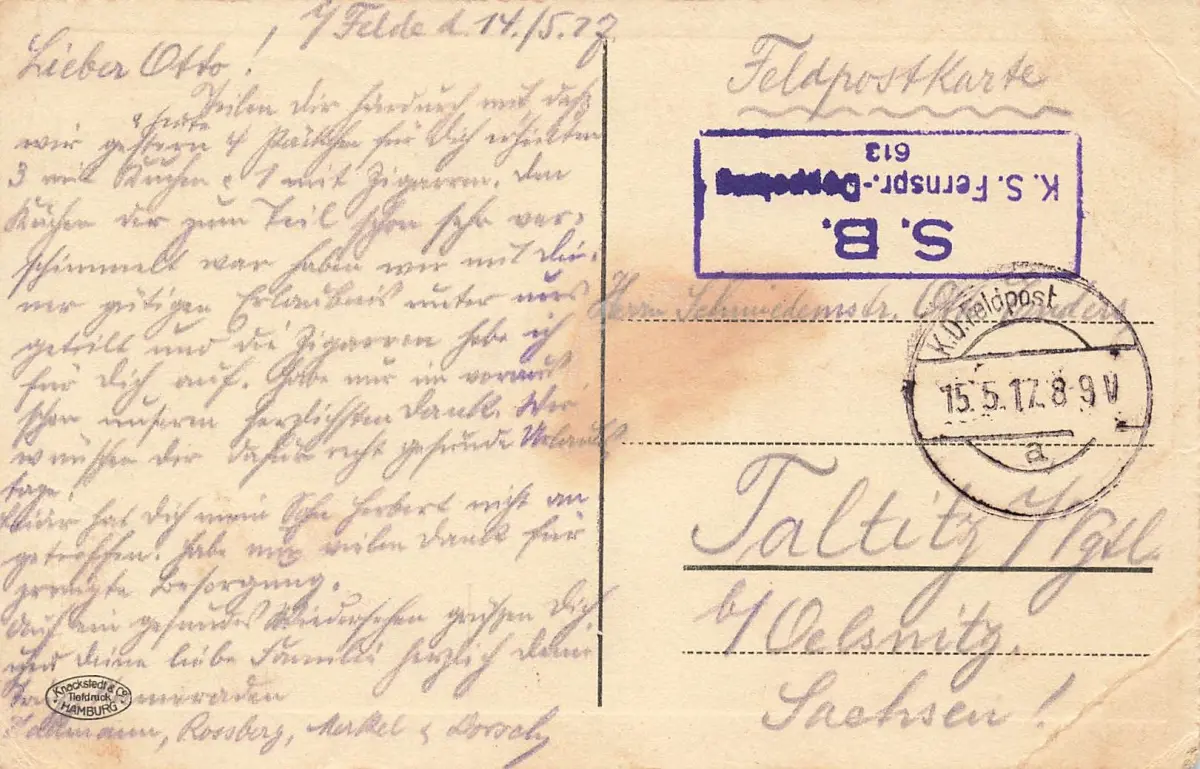 i/ Felde d. 14./5.17
Lieber Otto!
Teilen dir hierdurch mit, daß
wir gestern & heute 4 Päckchen für Dich erhielten
3 mit Kuchen & 1 mit Zigarren. Den
Kuchen der zum Teil schon sehr ver-
schimmelt war haben wir mit Dei-
ner gütigen Erlaubnis unter uns
geteilt und die Zigarren hebe ich
für Dich auf. Habe nur im voraus
schon unseren herzlichsten Dank. Wir
wünschen dir daher recht gesunde Urlaubs
tage!
hat Dich mein Sohn Herbert nicht an
getroffen. Habe nun vielen Dank für
Besorgung.
Auf ein gesundes Wiedersehen grüßen Dich
und deine liebe Familie herzlich deine
Kameraden
Rossberg, Merkel & Dorsch
Knackstedt & Co
Tiefdruck
HAMBURG
Feldpostkarte
S.B.
K. S. Fernspr.-Doppelzug
613
Herrn Schmiedemstr. Otto
K.D. Feldpost
15.5.17. 8-9 V
a
Taltitz i/Vgtl.
b/ Oelsnitz.
Sachsen!